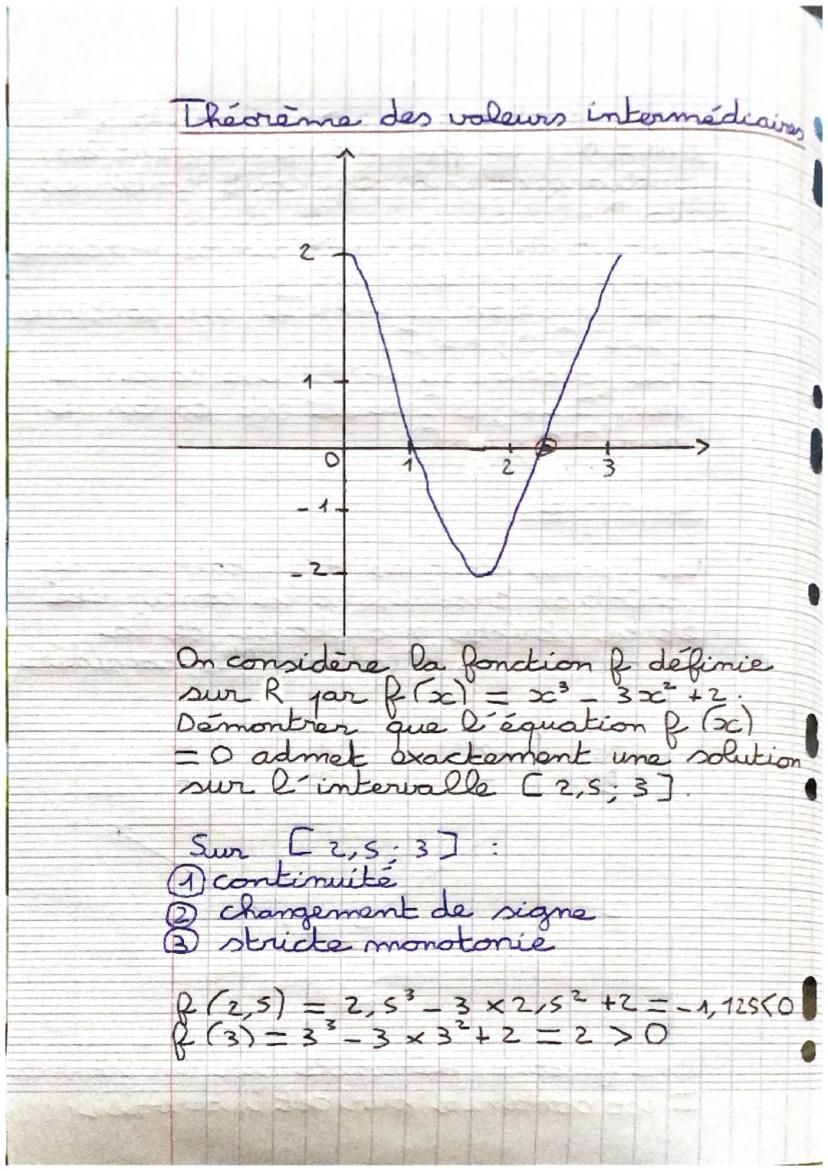 Théorème des valeurs intermédiaires
2
1
0 1 2 3
-1
-2
On considère la fonction f définie
sur R par f(x) = x³ - 3x² + 2.
Démontrer que l'équation f(x)
= 0 admet exactement une solution
sur l'intervalle [2,5; 3].
Sur [2,5; 3] :
① continuité
② changement de signe
③ stricte monotonie
f(2,5) = 2,5³ - 3 × 2,5² + 2 = -1,125<0
f(3) = 3³ - 3 × 3² + 2 = 2 > 0